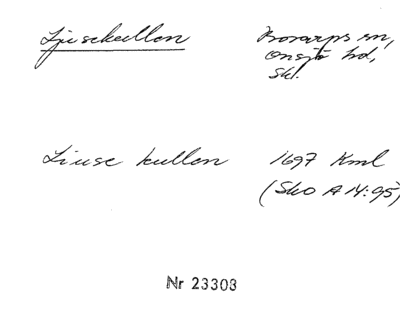 Ljusekullen
Bosarps sn,
Onsjö hd,
Sk.
Liuse kullen 1697 Kml
(SkO A 14:95)
Nr 23303